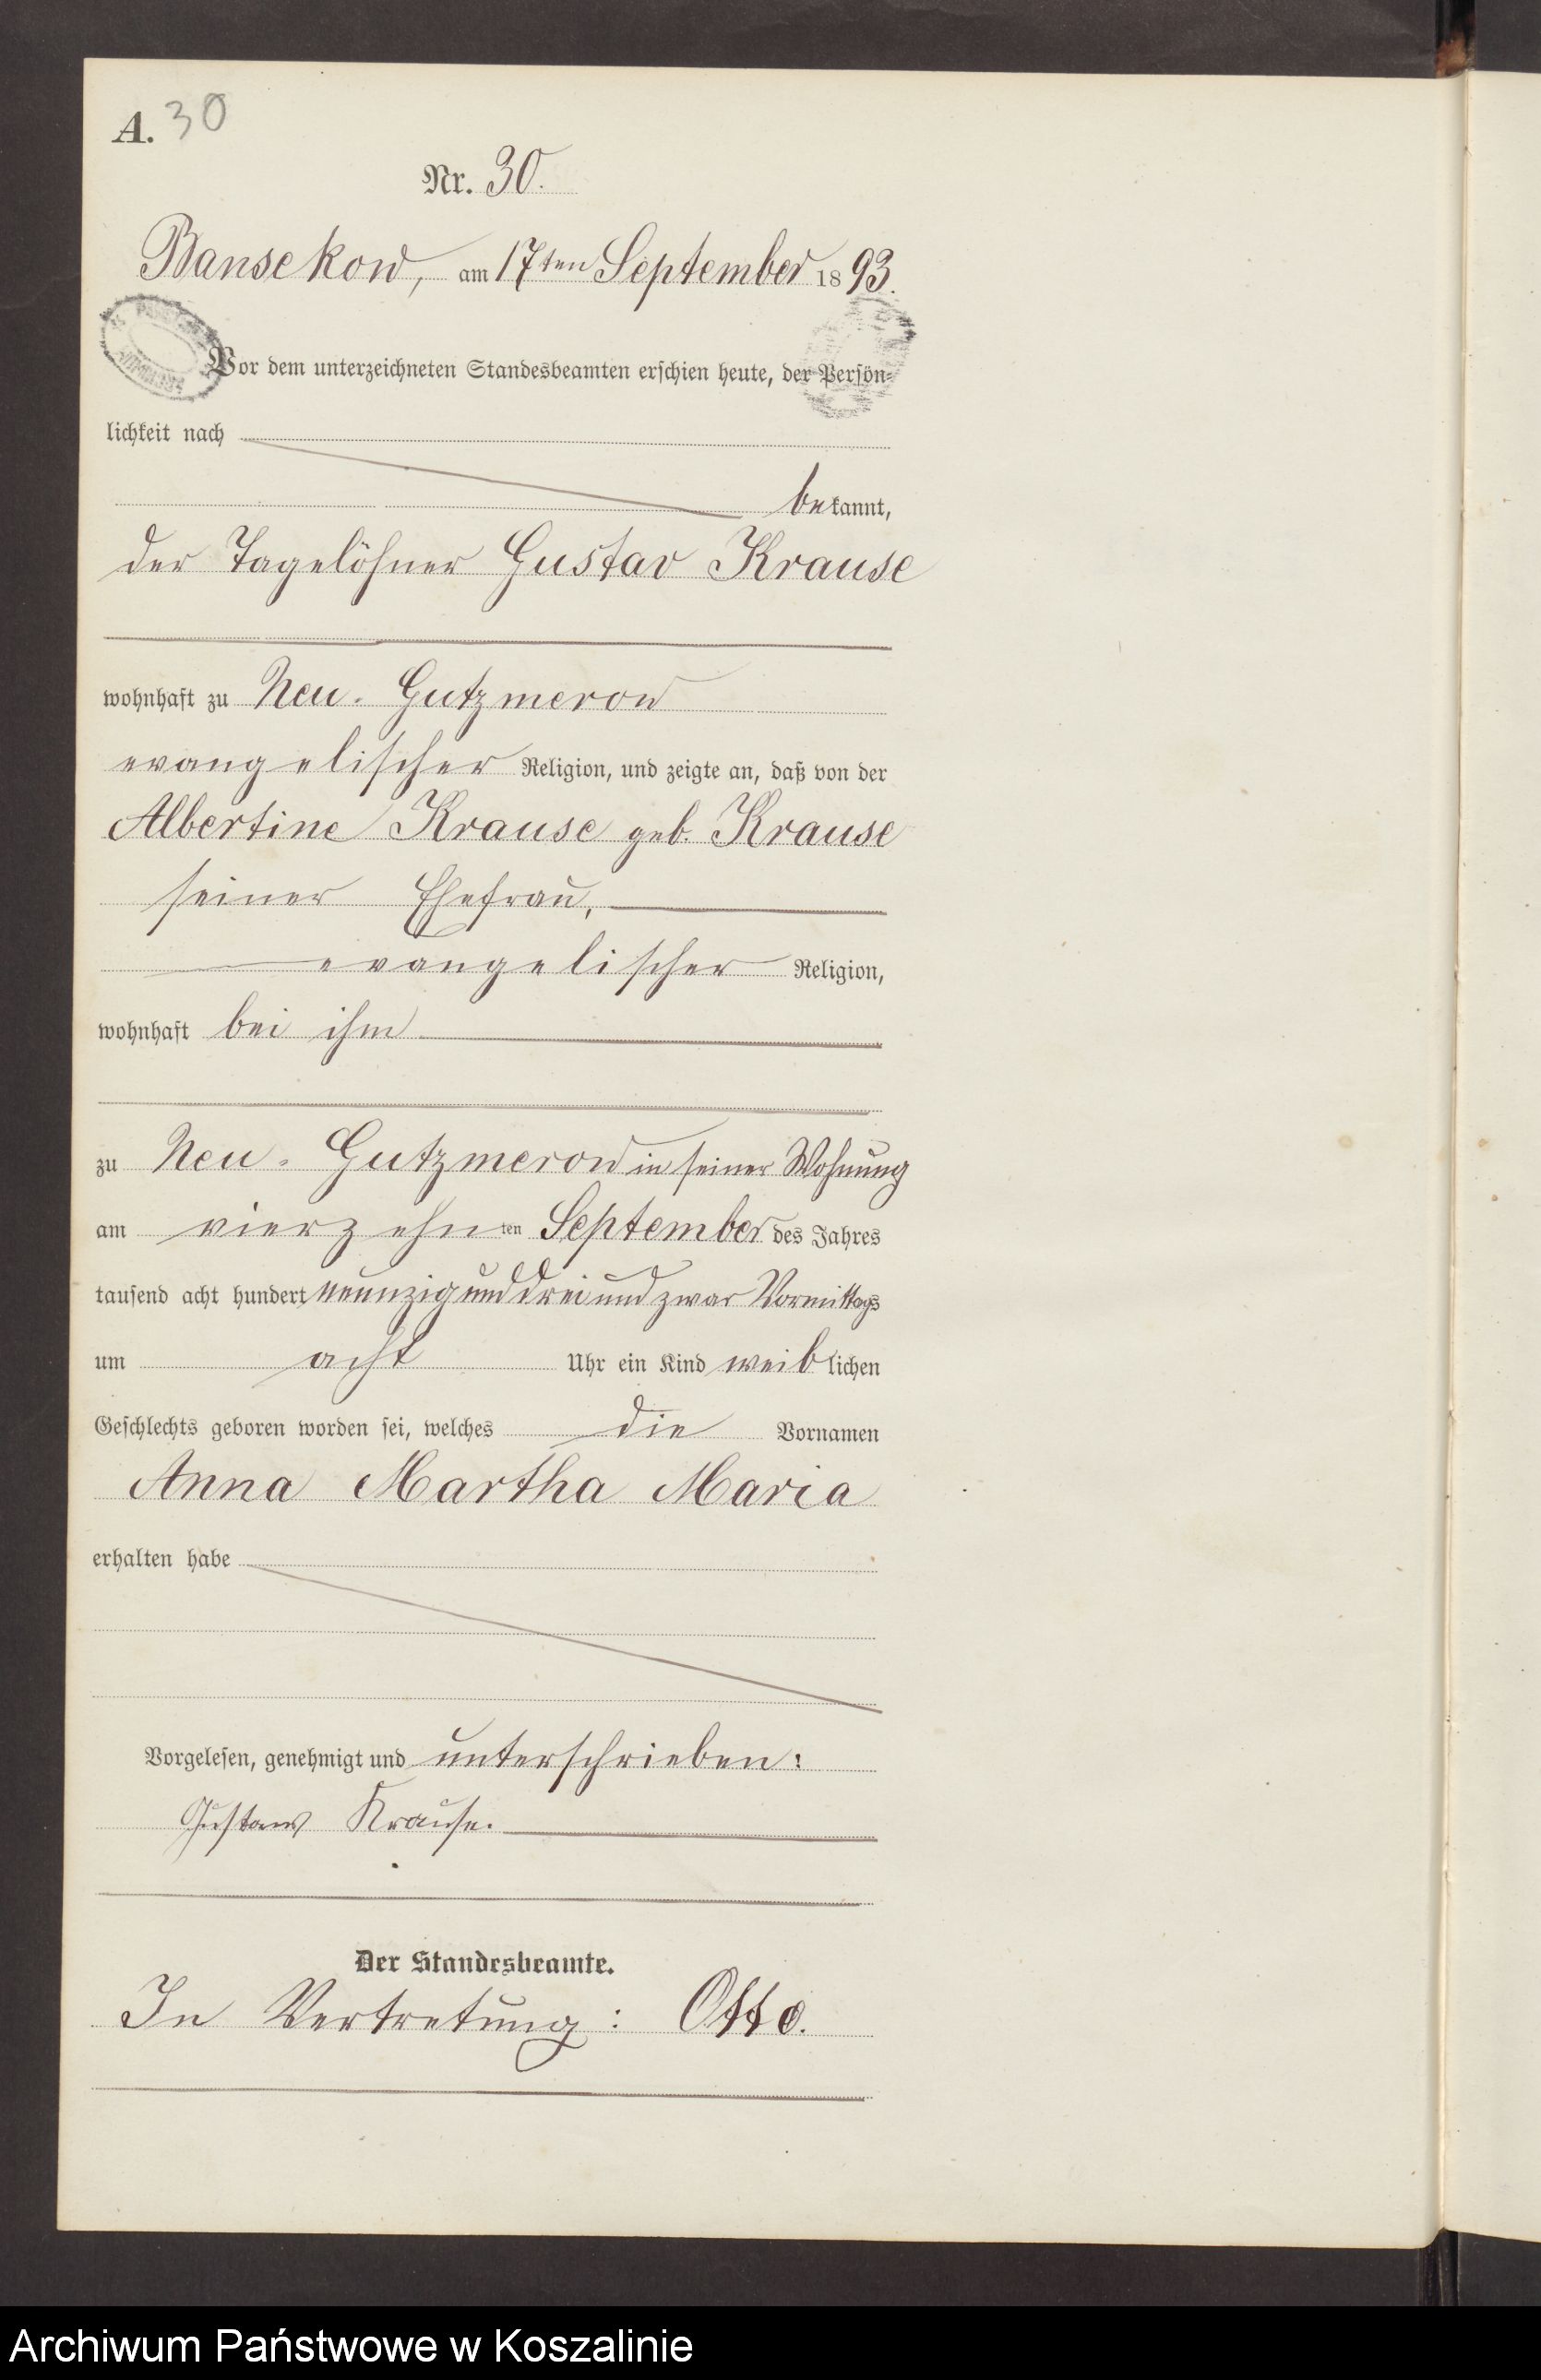 A. 30
Nr. 30.
Bansekow, am 17ten September 1893.
Vor dem unterzeichneten Standesbeamten erschien heute, der Persön-
lichkeit nach
bekannt,
der Tagelöhner Gustav Krause
wohnhaft zu Neu-Gutzmerow
evangelischer Religion, und zeigte an, daß von der
Albertine Krause geb. Krause
seiner Ehefrau,
evangelischer Religion,
wohnhaft bei ihm
zu Neu-Gutzmerow in seiner Wohnung
am vierzehnten September des Jahres
tausend acht hundert neunzig und drei und zwar Vormittags
um acht Uhr ein Kind weiblichen
Geschlechts geboren worden sei, welches die Vornamen
Anna Martha Maria
erhalten habe
Vorgelesen, genehmigt und unterschrieben:
Gustaw Krause.
Der Standesbeamte.
In Vertretung: Otto.
Archiwum Państwowe w Koszalinie